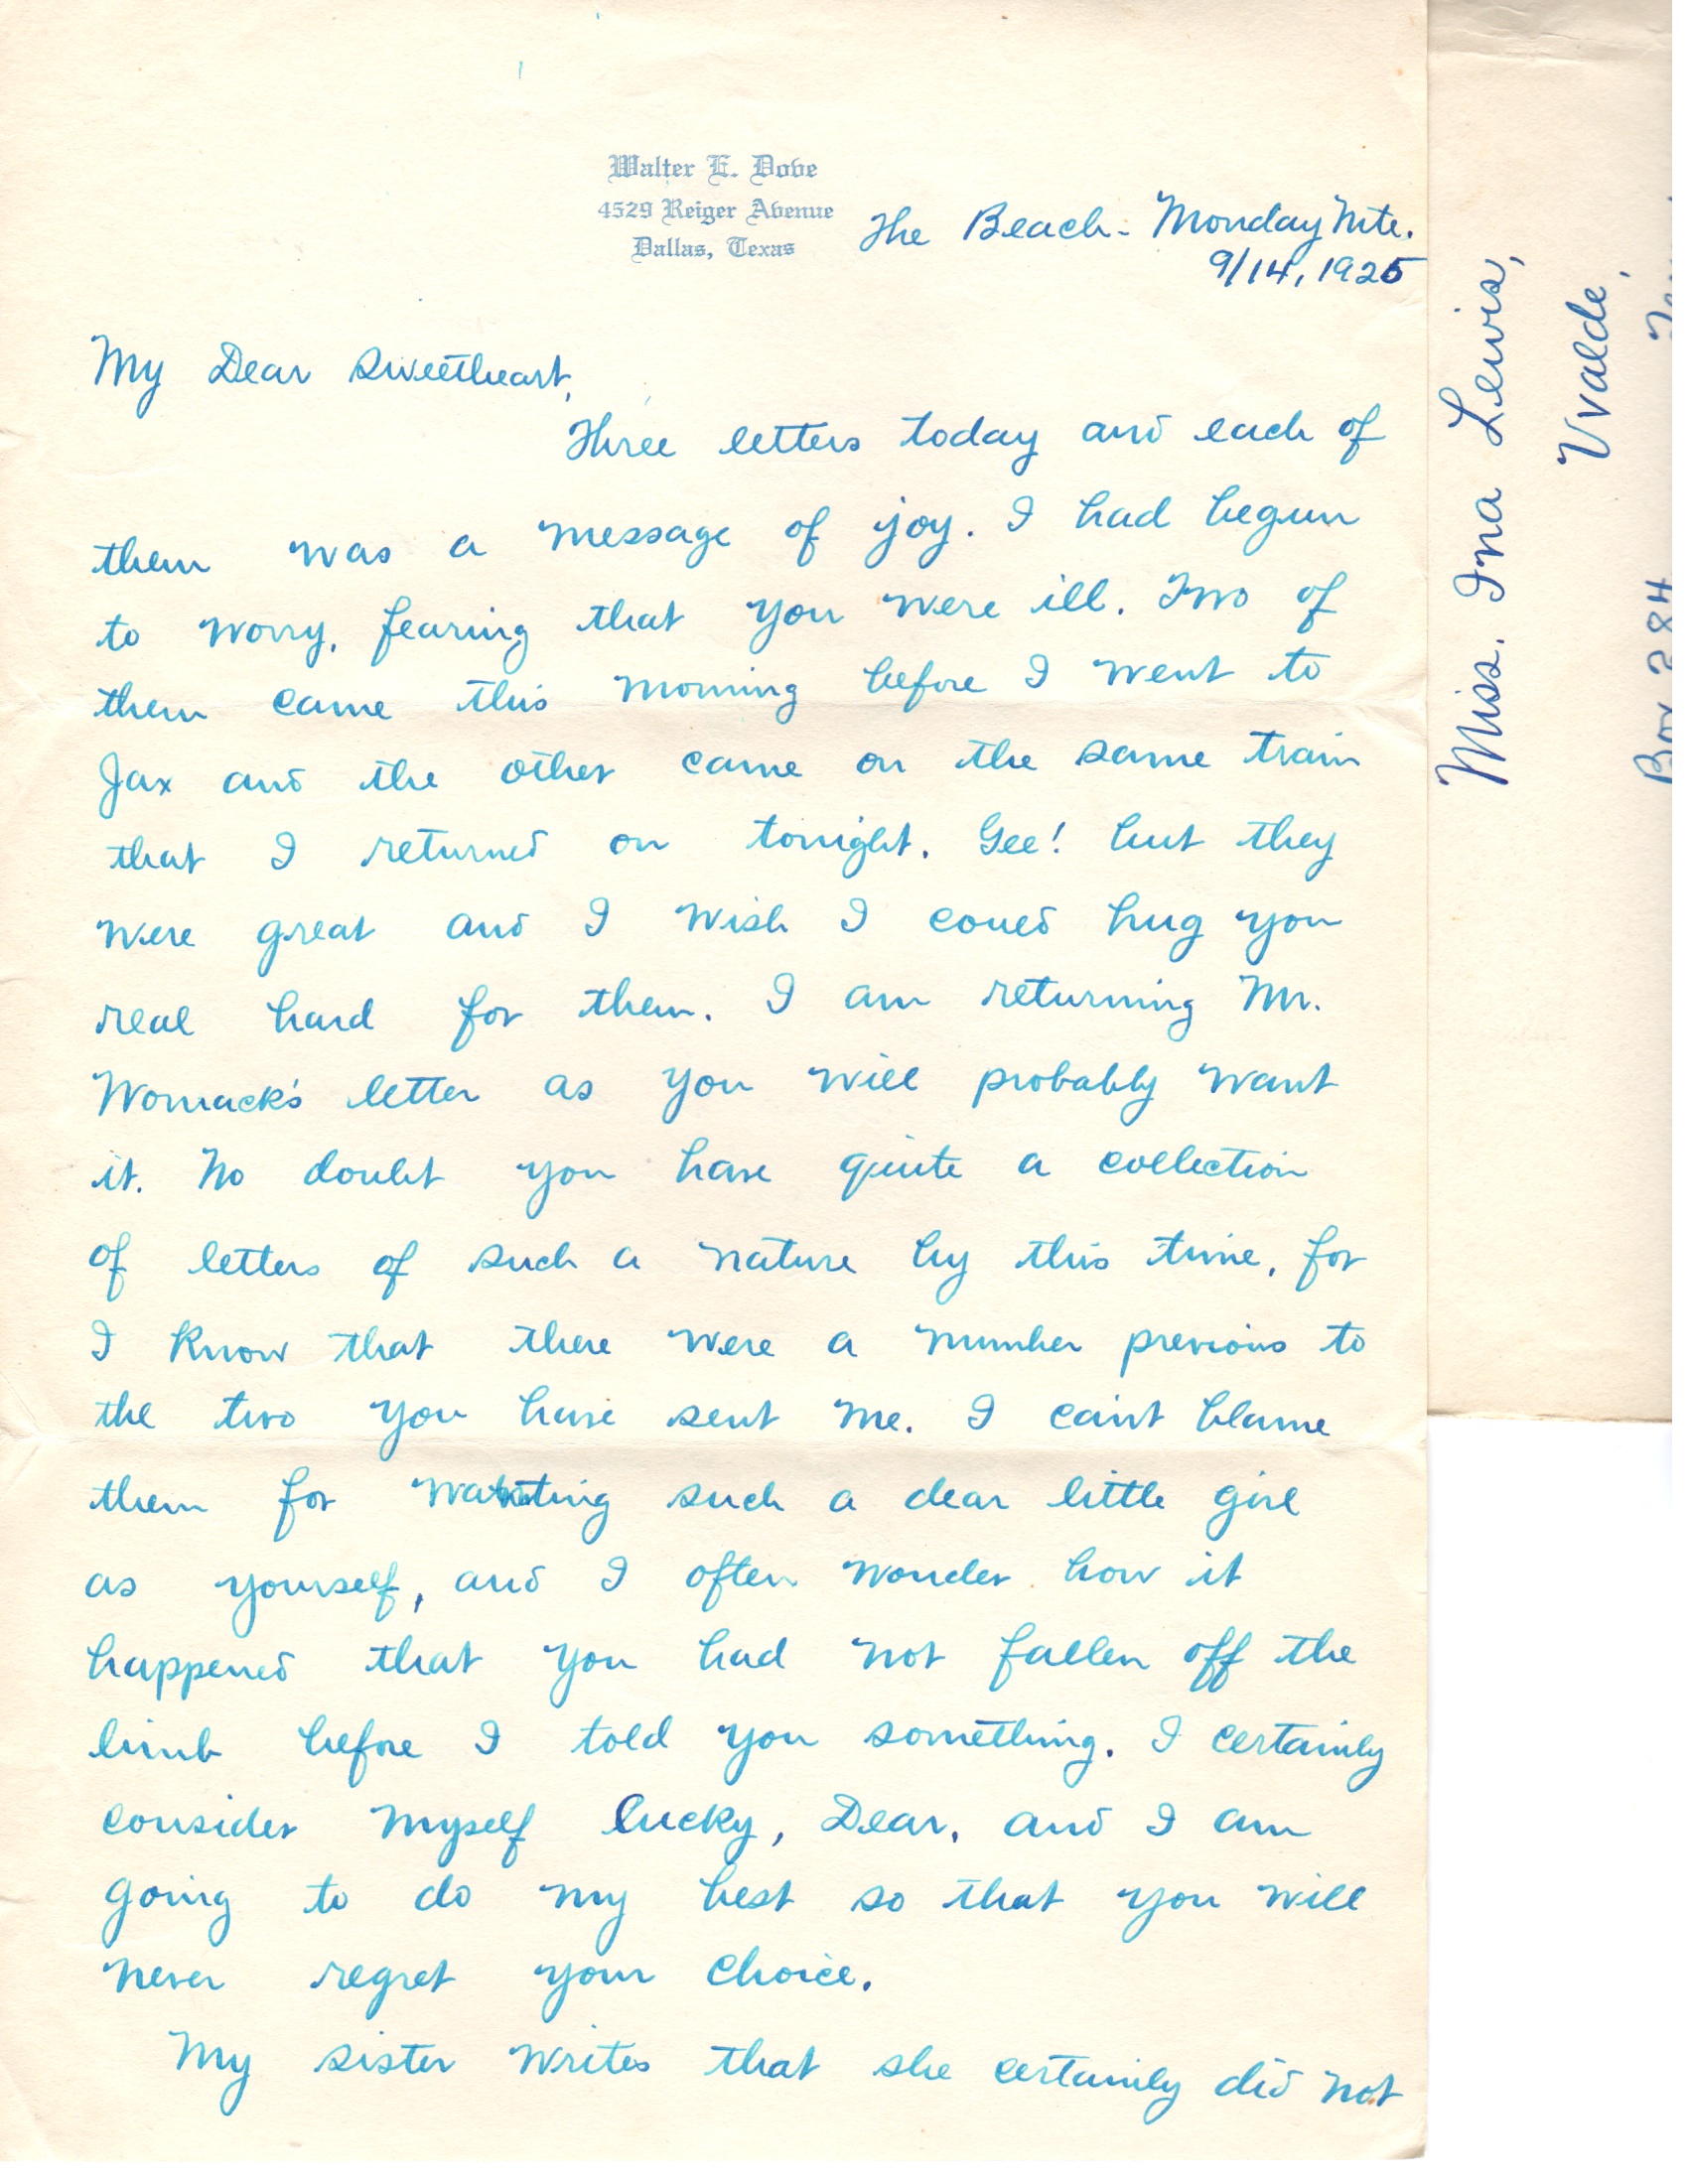 Walter E. Dove
4529 Reiger Avenue
Dallas, Texas
The Beach - Monday Nite.
9/14, 1925
My Dear Sweetheart,
Three letters today and each of
them was a message of joy. I had begun
to worry, fearing that you were ill. Two of
them came this morning before I went to
Jax and the other came on the same train
that I returned on tonight. Gee! but they
were great and I wish I could hug you
real hard for them. I am returning Mr.
Womack's letter as you will probably want
it. No doubt you have quite a collection
of letters of such a nature by this time, for
I know that there were a number previous to
the two you have sent me. I can't blame
them for wanting such a dear little girl
as yourself, and I often wonder how it
happened that you had not fallen off the
limb before I told you something. I certainly
consider myself lucky, Dear, and I am
going to do my best so that you will
never regret your choice.
My sister writes that she certainly did not
Miss. Ina Lewis,
Uvalde,
Box 284